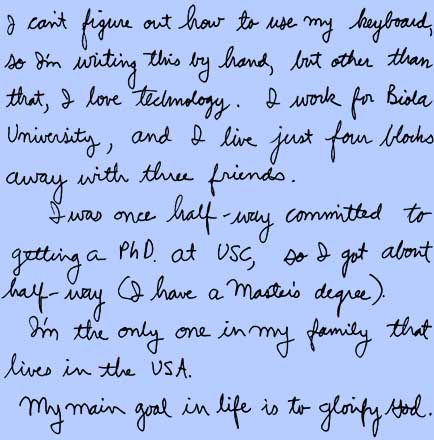 I can't figure out how to use my keyboard,
so I'm writing this by hand, but other than
that, I love technology. I work for Biola
University, and I live just four blocks
away with three friends.
I was once half-way committed to
getting a PhD. at USC, so I got about
half-way (I have a Master's degree).
I'm the only one in my family that
lives in the USA.
My main goal in life is to glorify God.